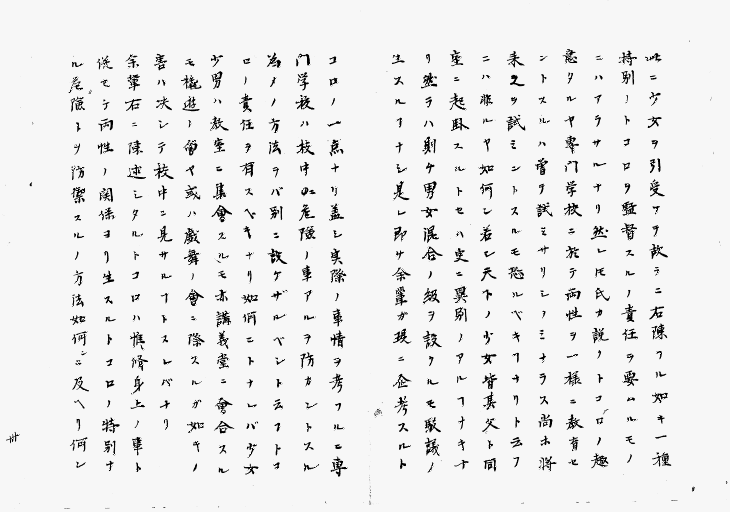 此ニ少女ヲ引受ケヲ故ラニ右陳フル如キ一種
特別ノトコロヲ監督スルノ責任ヲ要ムルモノ
ニハアラサルナリ然レ𪜈氏カ説ノトコロノ趣
意タルヤ専門学校ニ於テ両性ヲ一様ニ教育セ
ントスルハ曽テ試ミサリシノミナラス尚ホ将
来之ヲ試ミントスルモ恐ルベキヿナリト云フ
ニハ非ルヤ如何ン若シ天下ノ少女皆其父ト同
座ニ起臥スルトセハ更ニ異別ノアルヿナキナ
リ然ラハ則ケ男女混合ノ級ヲ設ケルモ駁議ノ
生スルヿナシ是レ即サ余輩ガ現ニ企考スルト
コロノ一点ナリ蓋シ実際ノ事情ヲ考フルニ専
門学校ハ校中ニ危険ノ事アルヲ防カントスル
為メノ方法ヲバ別ニ設ケザルベシト云フトコ
ロノ責任ヲ有スベキナリ如何ニトナレバ少女
少男ハ教室ニ集會スルモ亦講義堂ニ會合スル
モ檄遊ノ會ヤ或ハ戯舞ノ會ニ際スルガ如キノ
害ハ决シテ校中ニ見サルヿトスレバナリ
余輩右ニ陳述シタルトコロハ惟脩身上ノ事ト
係モテ両性ノ関係ヨリ生スルトコロノ特別ナ
ル危険トヲ防禦スルノ方法如何ンニ及ヘリ何ン